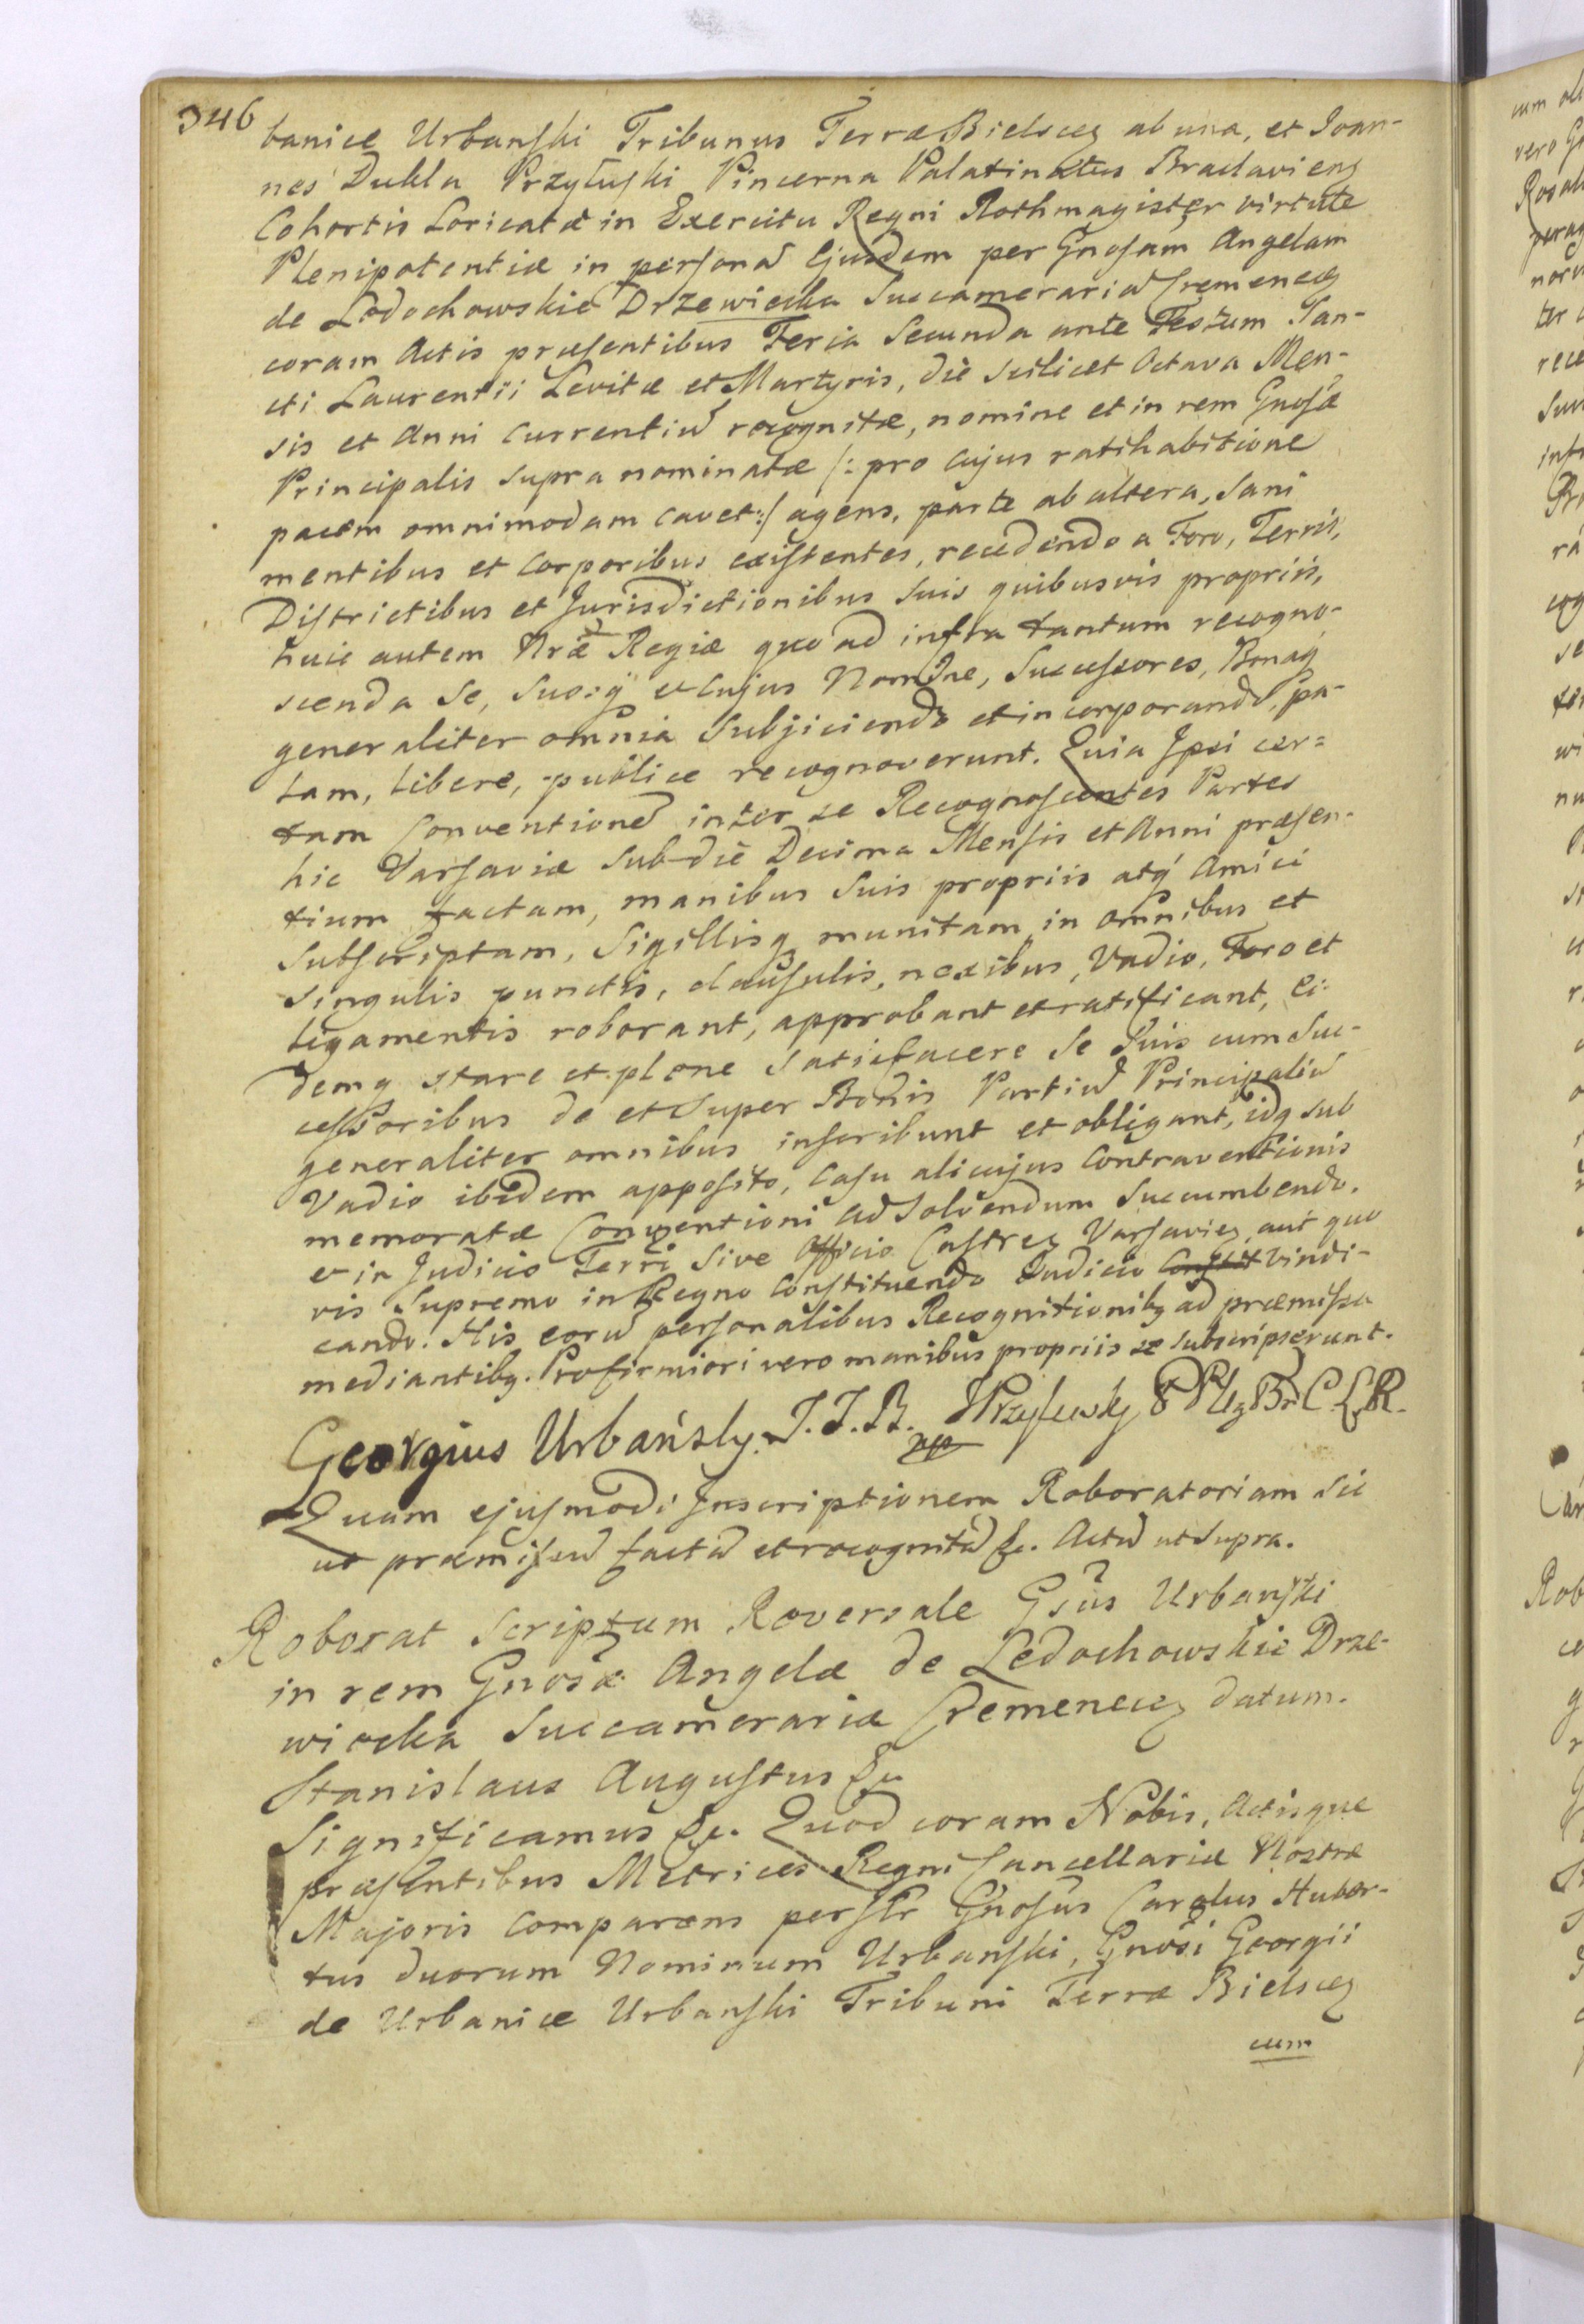 346
banice Urbanski Tribunus Terræ Bielscen ab una, et Joan-
nes Dukla Przyłuski Pincerna Palatinatus Braclavien
Cohortis Loricatæ in Exercitu Regni Rothmagister virtute
Plenipotentiæ in personā Ejusdem per Gnosam Angelam
de Ledochowskie Drzewiecka Succamerariā Cremenecen
coram Actis præsentibus Feria Secunda ante Festum San-
cti Laurentii Levitæ et Martyris, die scilicet Octava Men-
sis et Anni currentiū recognitæ, nomine et in rem Gnosæ
Principalis supra nominatæ /: pro cujus ratihabitione
pacem omnimodam cavet :/ agens, parte ab altera, Sani
mentibus et Corporibus existentes, recedendo a Foro, Terris,
Districtibus et Jurisdictionibus suis quibusvis propriis,
huic autem Nræ Regiæ quo ad infra tantum recogno-
scenda Se, Suosq et cujus Nomine, Successores, Bonaq
generaliter omnia Subjiciendo et incorporando, pa-
lam, libere, publice recognoverunt. Quia Ipsi cer=
tam Conventionē inter se Recognoscentes Partes
hic Varsaviæ Sub die Decima Mensis et Anni præsen-
tium factam, manibus Suis propriis atq Amici
Subscriptam, Sigillisq munitam in omnibus et
Singulis punctis, clausulis, nexibus, Vadio, Foro et
ligamentis roborant, approbant et ratificant, Ei-
demq stare et plene satisfacere Se Suis cum Suc-
cessoribus de et super Bonis Partiū Principaliū
generaliter omnibus inscribunt et obligant, idq sub
Vadio ibidem apposito, Casu alicujus Contraventionis
memoratæ Conventioni ad Solvendum Succumbendo.
et in Judicio Terri Sive Officio Castren Varsavien, aut quo
vis Supremo in Regno Constituendo Judicio Constit Vindi-
cando. His eorū personalibus Recognitionibq ad præmissa
mediantibq. Pro firmiori vero manibus propriis se subscripserunt.
Georgius Urbańsky. T. T. B. JPrzyłusky P Pltg Br C. L. R.
mp
Quam ejusmodi Inscriptionem Roboratoriam Sic
ut præmissū factā et recognitā &c. Actū ut Supra.
Roborat Scriptum Reversale Gsus Urbanski
in rem Gnosæ Angelæ de Ledochowskie Drze-
wiecka Succamerariæ Cremenecen datum.
Stanislaus Augustus &c
Significamus &c. Quod coram Nobis, Actisque
præsentibus Metrices Regni Cancellariæ Nostræ
Majoris Comparens perslr Gnosus Carolus Huber-
tus duorum Nominum Urbanski, Gnosi Georgii
de Urbanice Urbanski Tribuni Terræ Bielscen
cum